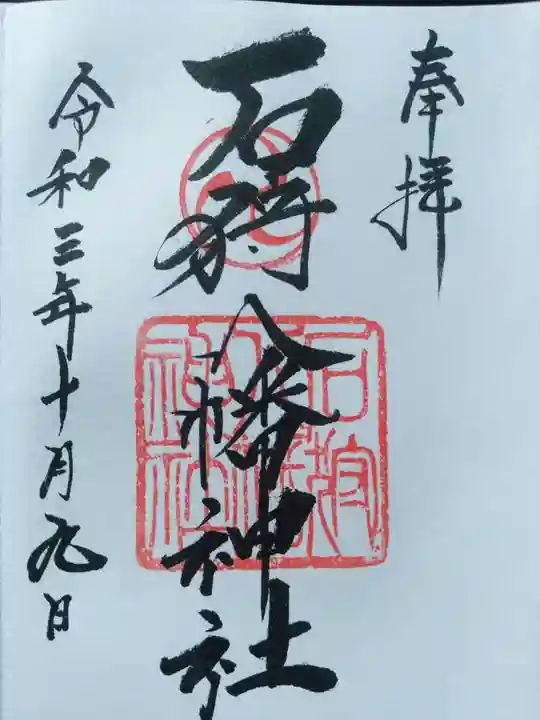 奉拝
石狩八幡神社
令和三年十月九日
石狩八幡神社